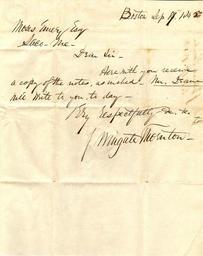 Boston Sep 19. 18
Moses Emery Esq
Saco. Me.
Dear Sir
Here with you receive
a copy of the notes, as wished. Mr. Deane
will write to you, to day
Very Respectfully &c. &c.
J Wingate Thornton